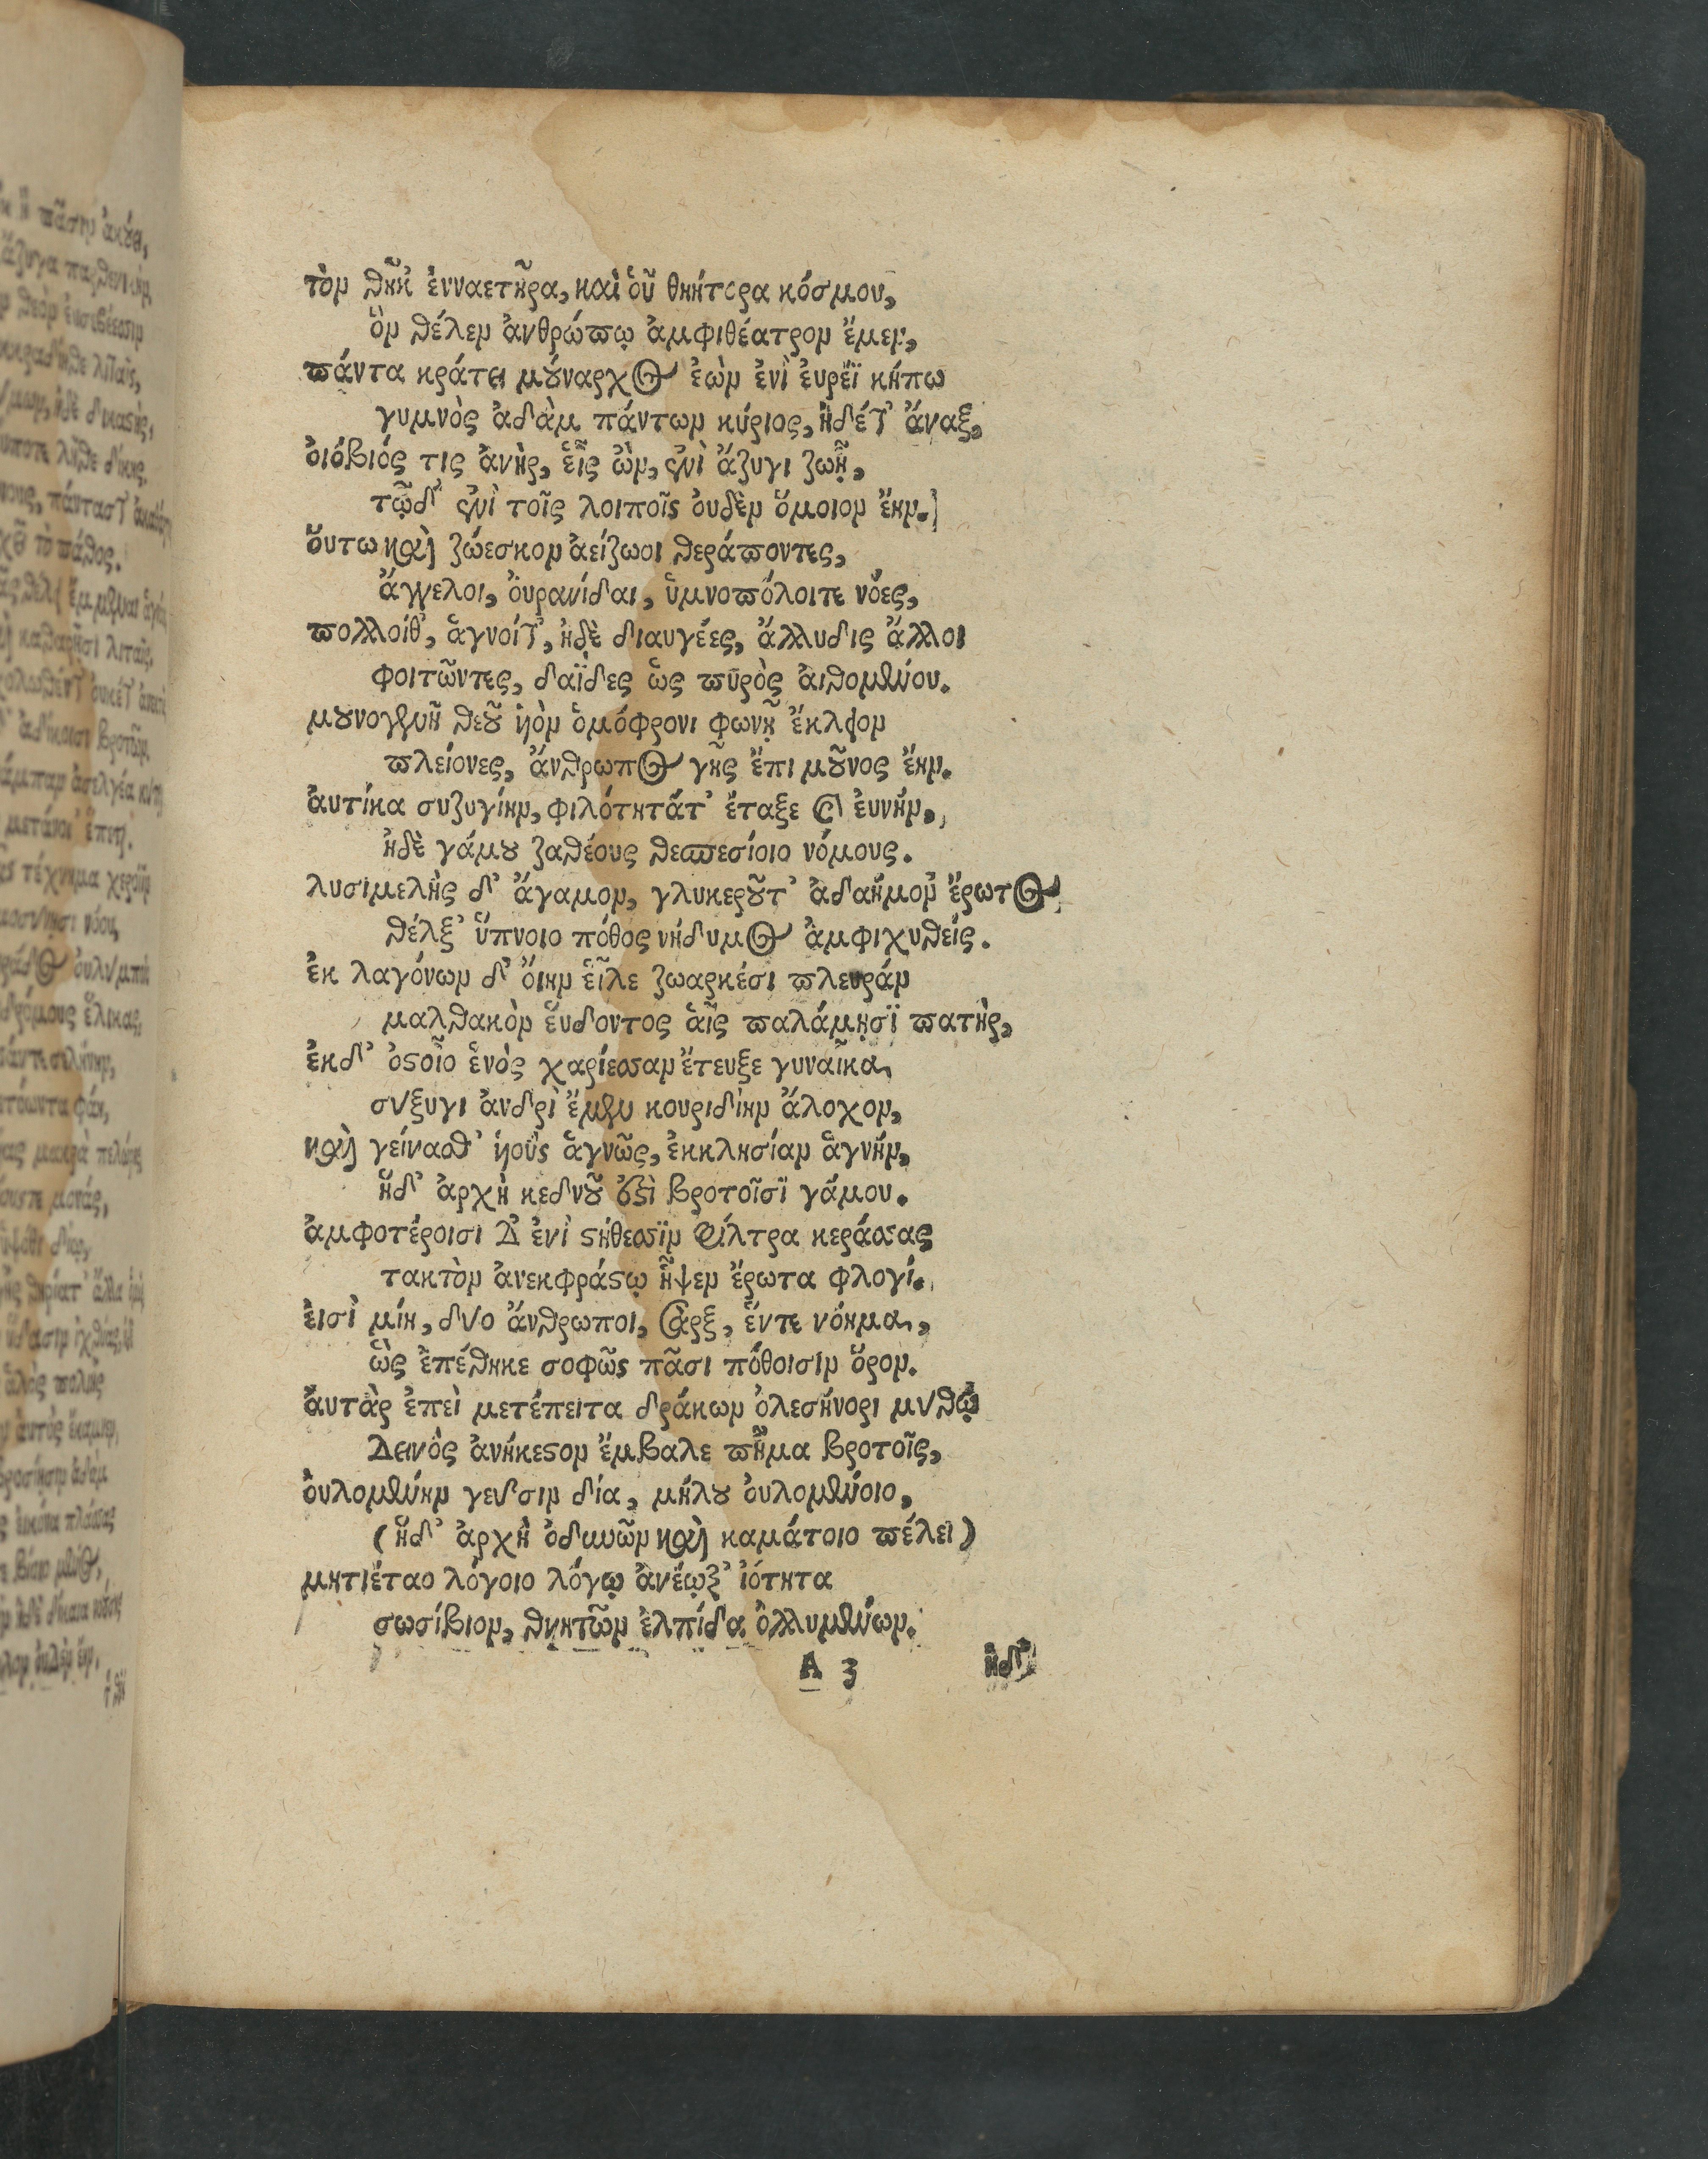 τὸν θῆκ' ἐνναετῆρα, καὶ οὗ θηήτορα κόσμου,
ὃν θέλεν ἀνθρώπῳ ἀμφιθέατρον ἔμεν,
πάντα κράτει μούναρχος ἐὼν ἐνὶ ἐυρέϊ κήπω
γυμνὸς ἀδὰμ πάντων κύριος, ἠδέτ' ἄναξ,
ὀιόβιός τις ἀνὴρ, εἷς ὢν, σὺν ἄζυγι ζωῇ,
τῷδ' σὺν τοῖς λοιποῖς ὀυδὲν ὅμοιον ἔην.
ὅυτω καὶ ζώεσκον ἀείζωοι θεράποντες,
ἄγγελοι, ὀυρανίδαι, ὑμνοπόλοιτε νόες,
πολλοίθ', ἁγνοίτ', ἠδὲ διαυγέες, ἄλλυδις ἄλλοι
φοιτῶντες, δαΐδες ὣς πῦρὸς ἀιθομένου.
μουνογενῆ θεοῦ ὑιὸν ὁμόφρονι φωνῇ ἔκλεον
πλείονες, ἄνθρωπος γῆς ἔπι μοῦνος ἔην.
ἀυτίκα συζυγίην, φιλότητάτ' ἔταξε καὶ ἐυνήν,
ἠδὲ γάμου ζαθέους θεσπεσίοιο νόμους.
λυσιμελὴς δ' ἄγαμον, γλυκεροῦτ' ἀδαήμον' ἔρωτος
θέλξ' ὕπνοιο πόθος νήδυμος ἀμφιχυθείς.
ἐκ λαγόνων δ' ὄιην εἷλε ζωαρκέσι πλευράν
μαλθακὸν ἕυδοντος ἁῗς παλάμῃσϊ πατὴρ,
ἐκδ' ὀστοῖο ἑνὸς χαρίεσσαν ἔτευξε γυναῖκα,
σύξυγι ἀνδρὶ ἔμεν κουριδίην ἄλοχον,
καὶ γείνασθ' ὑιοὺς ἁγνῶς, ἐκκλησίαν ἁγνήν,
ἥδ' ἀρχὴ κεδνοῦ ἐστὶ βροτοῖσϊ γάμου.
ἀμφοτέροισι δ' ἐνὶ στήθεσσϊν φίλτρα κεράσσας
τακτὸν ἀνεκφράστῳ ἧψεν ἔρωτα φλογί.
ἐισὶ μίη, δύο ἄνθρωποι, σὰρξ, ἕντε νόημα,
ὣς ἐπέθηκε σοφῶς πᾶσι πόθοισιν ὅρον.
ἀυτὰρ ἐπεὶ μετέπειτα δράκων ὀλεσήνορι μύθῳ
δεινὸς ἀνήκεστον ἔμβαλε πῆμα βροτοῖς,
ὀυλομένην γεῦσιν δία, μήλου ὀυλομένοιο,
(ἥδ' ἀρχὴ ὀδυνῶν καὶ καμάτοιο πέλει)
μητιέταο λόγοιο λόγῳ ἀνέῳξ' ἰότητα
σωσίβιον, θνητῶν ἐλπίδα ὀλλυμένων.
A 3 ἠδ'